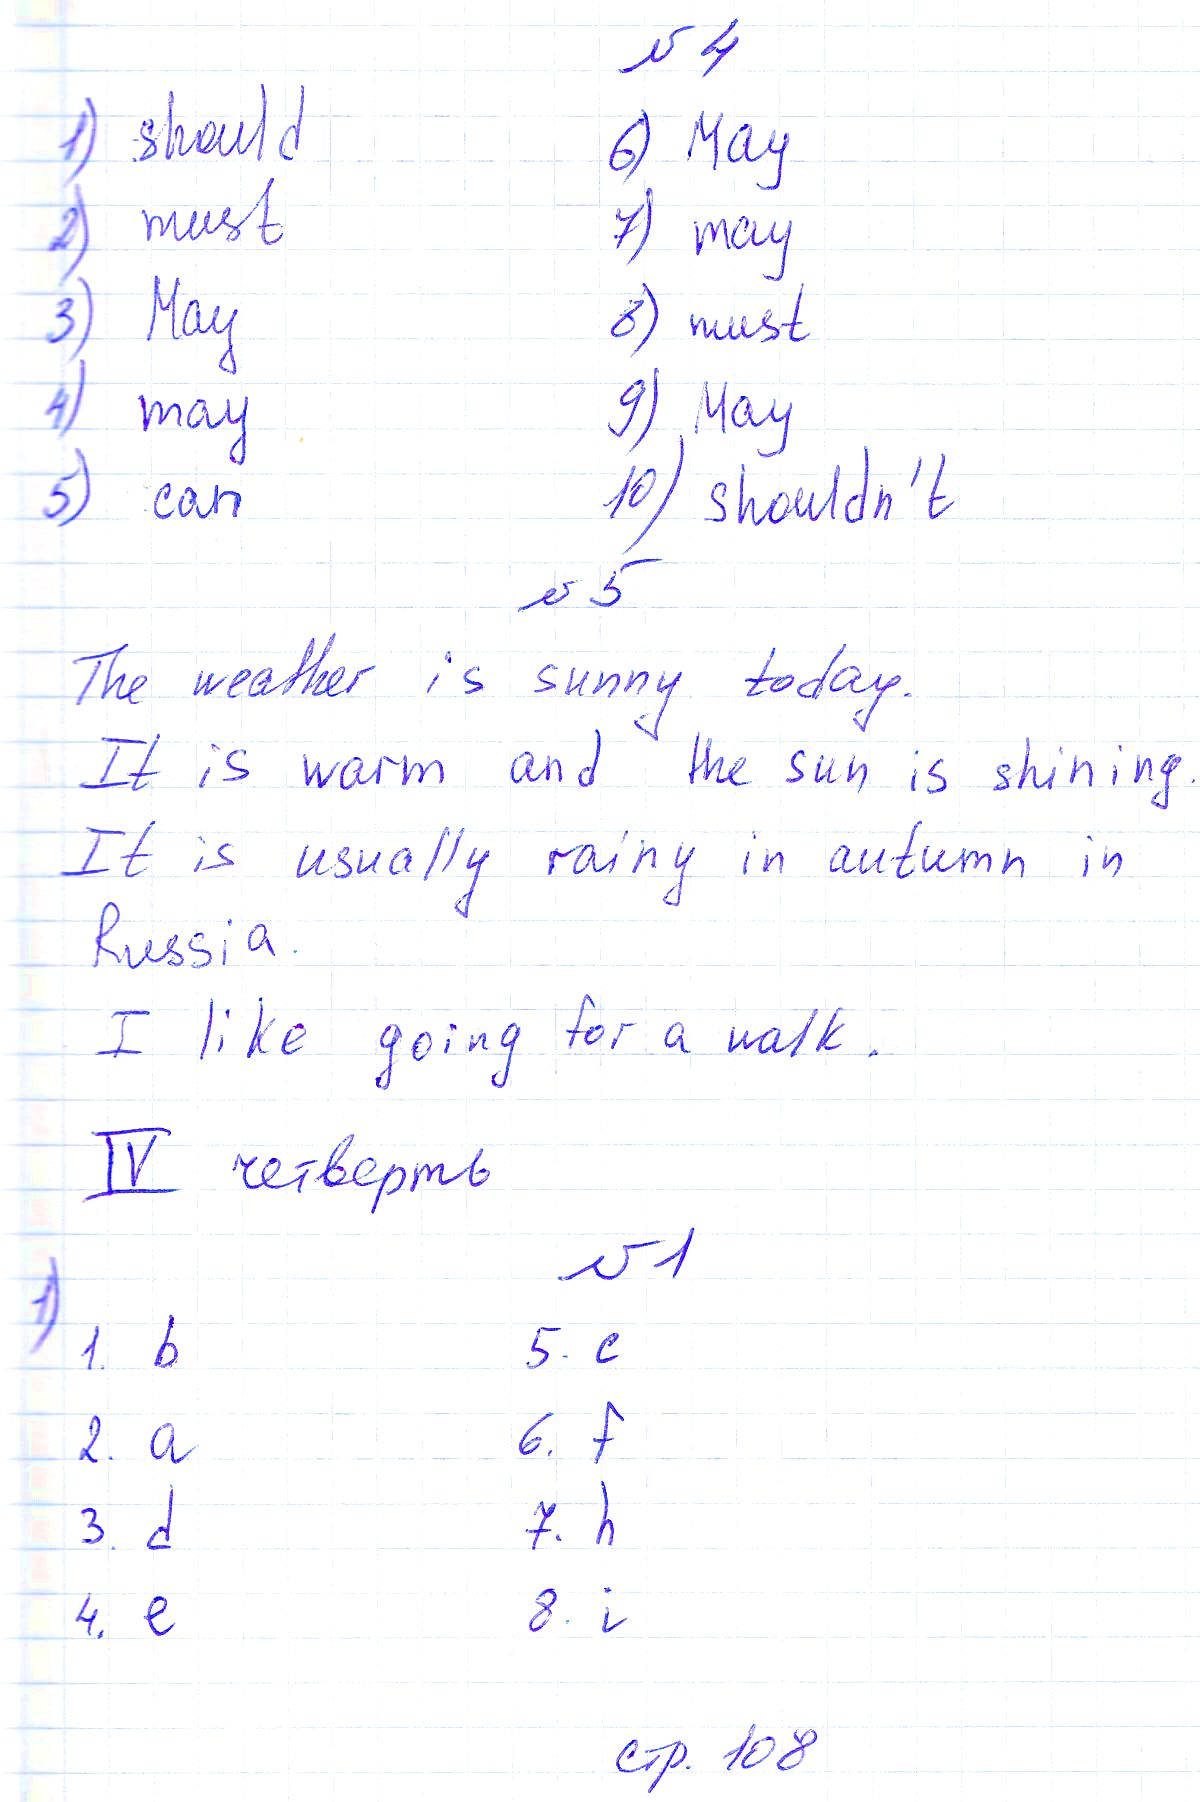 № 4
1) should 6) May
2) must 7) may
3) May 8) must
4) may 9) May
5) can 10) shouldn't
№ 5
The weather is sunny today.
It is warm and the sun is shining.
It is usually rainy in autumn in
Russia.
I like going for a walk.
IV четверть
№ 1
1)
1. b 5. c
2. a 6. f
3. d 7. h
4. e 8. i
стр. 108